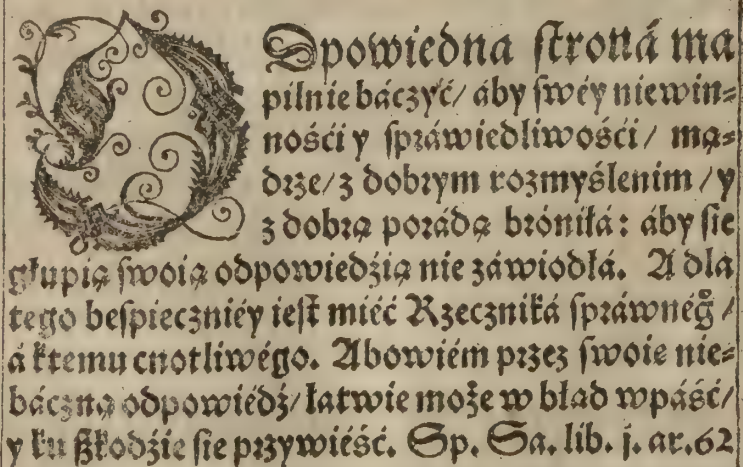 ODpowiedna ſtroná ma
pilnie báczyć/ áby ſwéy niewin⸗
nośći y ſpráwiedliwośći / mą⸗
drze/ z dobrym rozmyślenim / y
z dobrą porádą bróniłá: áby ſie
głupią ſwoią odpowiedźią nie záwiodłá. A dla
tego beſpieczniéy ieſt miéć Rzeczniká ſpráwnég̊ /
á ktemu cnotliwégo. Abowiém przez ſwoie nie⸗
báczną odpowiédź/ łatwie może w błąd wpáść/
y ku ßkodźie ſie przywiéść. Sp. Sa. lib. j. ar. 62